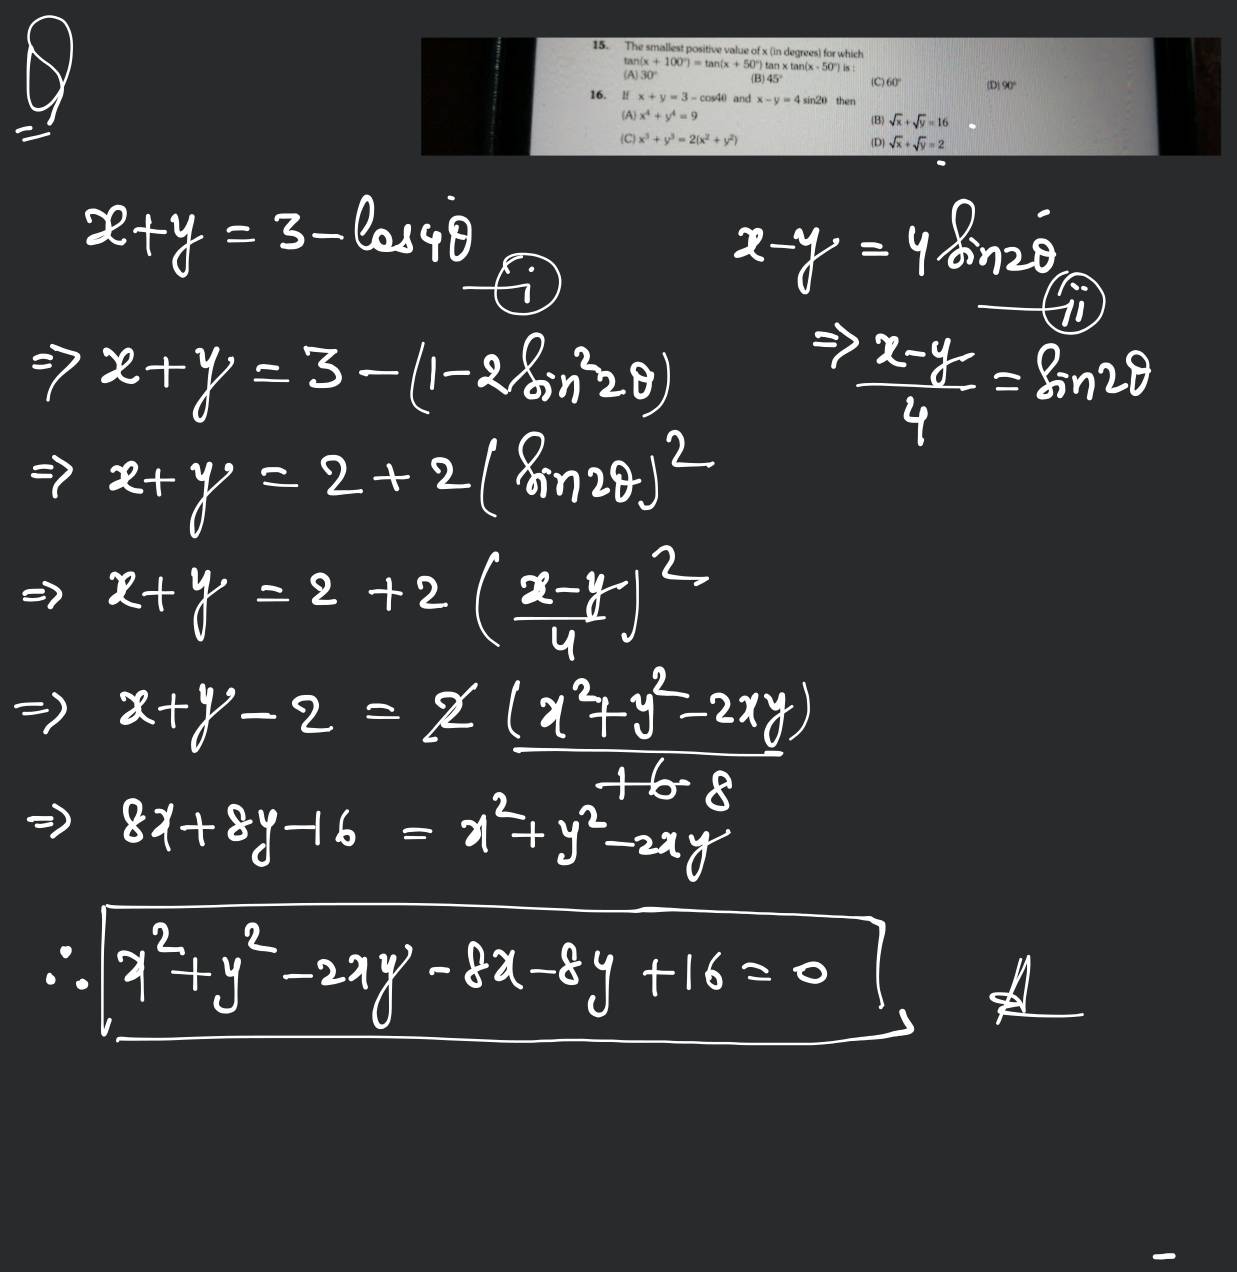 Q
15. The smallest positive value of x (in degrees) for which
tan(x + 100°) = tan(x + 50°) tan x tan(x - 50°) is :
(A) 30° (B) 45° (C) 60° (D) 90°
16. If x + y = 3 - cos4θ and x - y = 4 sin2θ then
(A) x⁴ + y⁴ = 9 (B) √x + √y = 16
(C) x³ + y³ = 2(x² + y²) (D) √x + √y = 2
x+y = 3-cos4θ —(i) x-y = 4 sin2θ —(ii)
⇒ x+y = 3-(1-2sin²2θ) ⇒ (x-y)/4 = sin2θ
⇒ x+y = 2+2(sin2θ)²
⇒ x+y = 2+2((x-y)/4)²
⇒ x+y-2 = 2(x²+y²-2xy)/16 8
⇒ 8x+8y-16 = x²+y²-2xy
∴ x²+y²-2xy-8x-8y+16=0